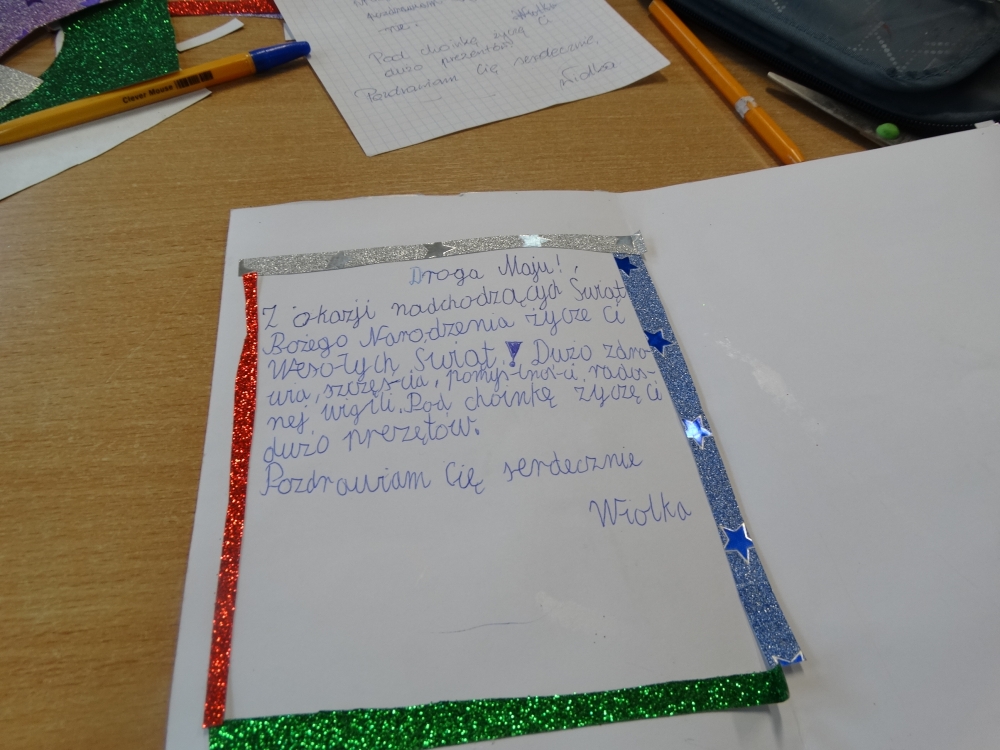 Clever Mouse
Wiolka
nie.
Ci
Pod choinkę życzę
dużo prezentów
Pozdrawiam Cię serdecznie,
Wiolka
Droga Maju!
Z okazji nadchodzących Świąt
Bożego Narodzenia życzę Ci
Wesołych Świąt! Dużo zdro-
wia, szczęś-cia, pomyś-lnoś-ci, rados-
nej wigili. Pod choinkę życzę Ci
dużo prezętów.
Pozdrawiam Cię serdecznie
Wiolka